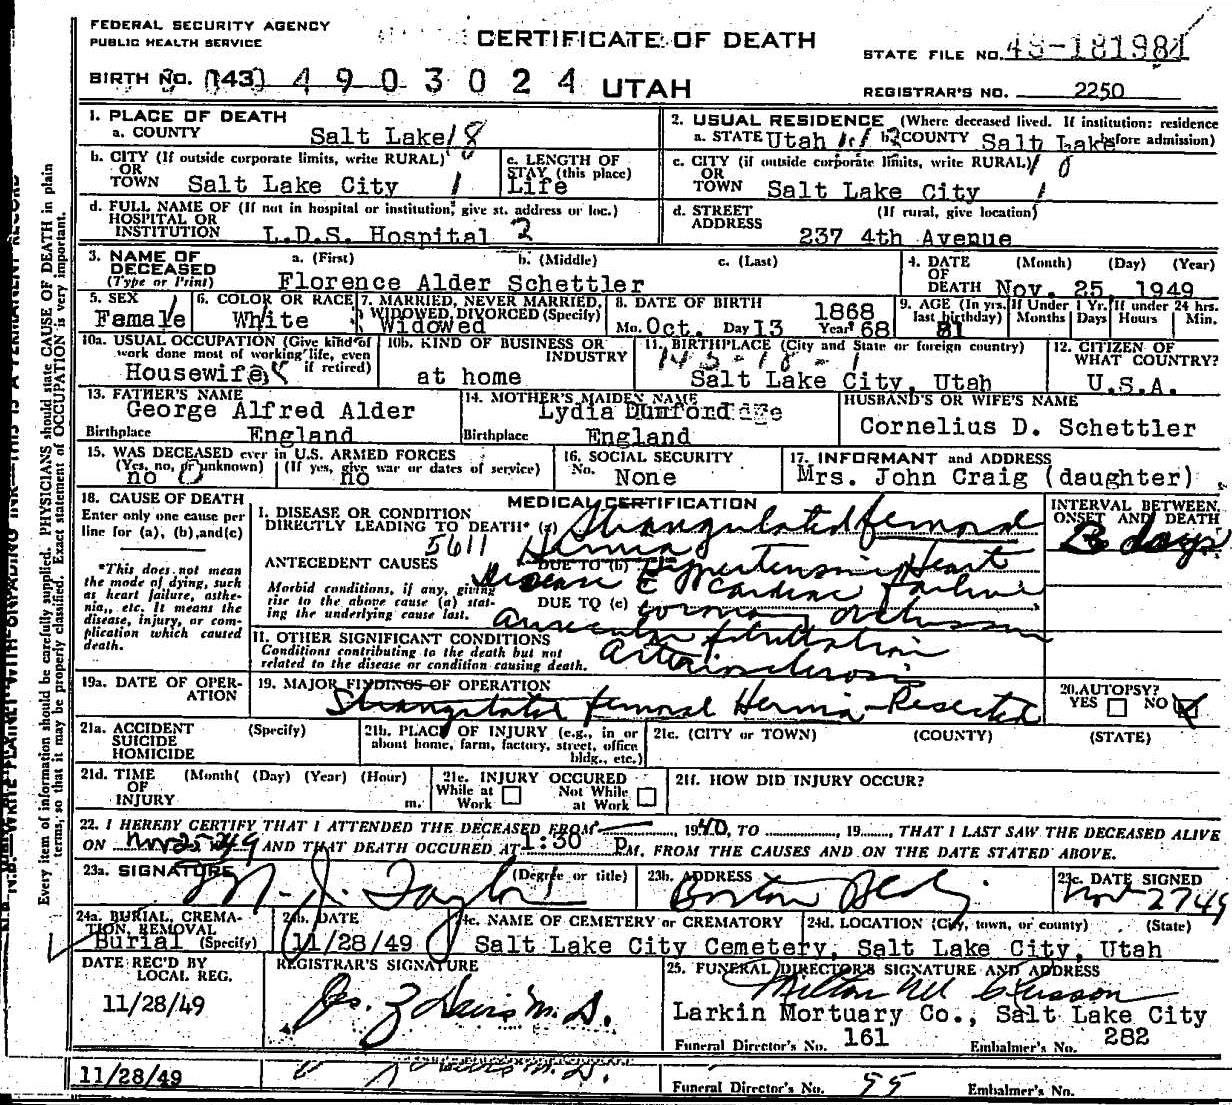 FEDERAL SECURITY AGENCY
PUBLIC HEALTH SERVICE
CERTIFICATE OF DEATH
STATE FILE NO. 49-181981
BIRTH NO. (143) 4903024 UTAH
REGISTRAR'S NO. 2250
1. PLACE OF DEATH
a. COUNTY Salt Lake 18
2. USUAL RESIDENCE (Where deceased lived. If institution: residence before admission)
a. STATE Utah b. COUNTY Salt Lake
b. CITY (If outside corporate limits, write RURAL)
OR
TOWN Salt Lake City 1
c. LENGTH OF
STAY (this place)
Life
c. CITY (if outside corporate limits, write RURAL)
OR
TOWN Salt Lake City 1
d. FULL NAME OF (If not in hospital or institution, give st. address or loc.)
HOSPITAL OR
INSTITUTION L.D.S. Hospital 2
d. STREET (If rural, give location)
ADDRESS
237 4th Avenue
3. NAME OF DECEASED (Type or Print)
a. (First) b. (Middle) c. (Last)
Florence Alder Schettler
4. DATE OF DEATH (Month) (Day) (Year)
Nov. 25, 1949
5. SEX
Female
6. COLOR OR RACE
White
7. MARRIED, NEVER MARRIED,
WIDOWED, DIVORCED (Specify)
Widowed
8. DATE OF BIRTH 1868
Mo. Oct. Day 13 Year 68
9. AGE (In yrs. last birthday) 81
If Under 1 Yr. Months Days
If under 24 hrs. Hours Min.
10a. USUAL OCCUPATION (Give kind of
work done most of working life, even
if retired)
Housewife
10b. KIND OF BUSINESS OR
INDUSTRY
at home
11. BIRTHPLACE (City and State or foreign country)
143-18-1
Salt Lake City, Utah
12. CITIZEN OF
WHAT COUNTRY?
U.S.A.
13. FATHER'S NAME
George Alfred Alder
Birthplace England
14. MOTHER'S MAIDEN NAME
Lydia
Birthplace England
HUSBAND'S OR WIFE'S NAME
Cornelius D. Schettler
15. WAS DECEASED ever in U.S. ARMED FORCES
(Yes, no, or unknown) (If yes, give war or dates of service)
no no
16. SOCIAL SECURITY
No. None
17. INFORMANT and ADDRESS
Mrs. John Craig (daughter)
18. CAUSE OF DEATH
Enter only one cause per
line for (a), (b), and (c)
*This does not mean
the mode of dying, such
as heart failure, asthe-
nia, etc. It means the
disease, injury, or com-
plication which caused
death.
MEDICAL CERTIFICATION
I. DISEASE OR CONDITION
DIRECTLY LEADING TO DEATH* (a) Strangulated femoral
5611 Hernia
ANTECEDENT CAUSES
DUE TO (b) Hypertensive Heart
Disease c Cardiac Failure
Morbid conditions, if any, giving
rise to the above cause (a) stat-
ing the underlying cause last.
DUE TO (c) occlusion
Auricular fibrillation
II. OTHER SIGNIFICANT CONDITIONS
Conditions contributing to the death but not
related to the disease or condition causing death.
Arteriosclerosis
INTERVAL BETWEEN
ONSET AND DEATH
days
19a. DATE OF OPER-
ATION
19. MAJOR FINDINGS OF OPERATION
Strangulated femoral Hernia - Resected
20. AUTOPSY?
YES NO
21a. ACCIDENT (Specify)
SUICIDE
HOMICIDE
21b. PLACE OF INJURY (e.g., in or
about home, farm, factory, street, office
bldg., etc.)
21c. (CITY or TOWN) (COUNTY) (STATE)
21d. TIME (Month) (Day) (Year) (Hour)
OF
INJURY m.
21e. INJURY OCCURED
While at Work Not While at Work
21f. HOW DID INJURY OCCUR?
22. I HEREBY CERTIFY THAT I ATTENDED THE DECEASED FROM , 1940, TO , 19 , THAT I LAST SAW THE DECEASED ALIVE
ON Nov 25 1949 AND THAT DEATH OCCURED AT 1:30 P.M. FROM THE CAUSES AND ON THE DATE STATED ABOVE.
23a. SIGNATURE (Degree or title)
M. J. Taylor
23b. ADDRESS
Boston Bldg.
23c. DATE SIGNED
Nov 27 49
24a. BURIAL, CREMA-
TION, REMOVAL
Burial (Specify)
24b. DATE
11/28/49
24c. NAME OF CEMETERY or CREMATORY
Salt Lake City Cemetery,
24d. LOCATION (City, town, or county) (State)
Salt Lake City, Utah
DATE REC'D BY
LOCAL REG.
11/28/49
REGISTRAR'S SIGNATURE
M.D.
25. FUNERAL DIRECTOR'S SIGNATURE AND ADDRESS
Larkin Mortuary Co., Salt Lake City
Funeral Director's No. 161 Embalmer's No. 282
11/28/49
Funeral Director's No. 55 Embalmer's No.
N.B. WRITE PLAINLY WITH UNFADING INK—THIS IS A PERMANENT RECORD
Every item of information should be carefully supplied. PHYSICIANS should state CAUSE OF DEATH in plain
terms, so that it may be properly classified. Exact statement of OCCUPATION is very important.